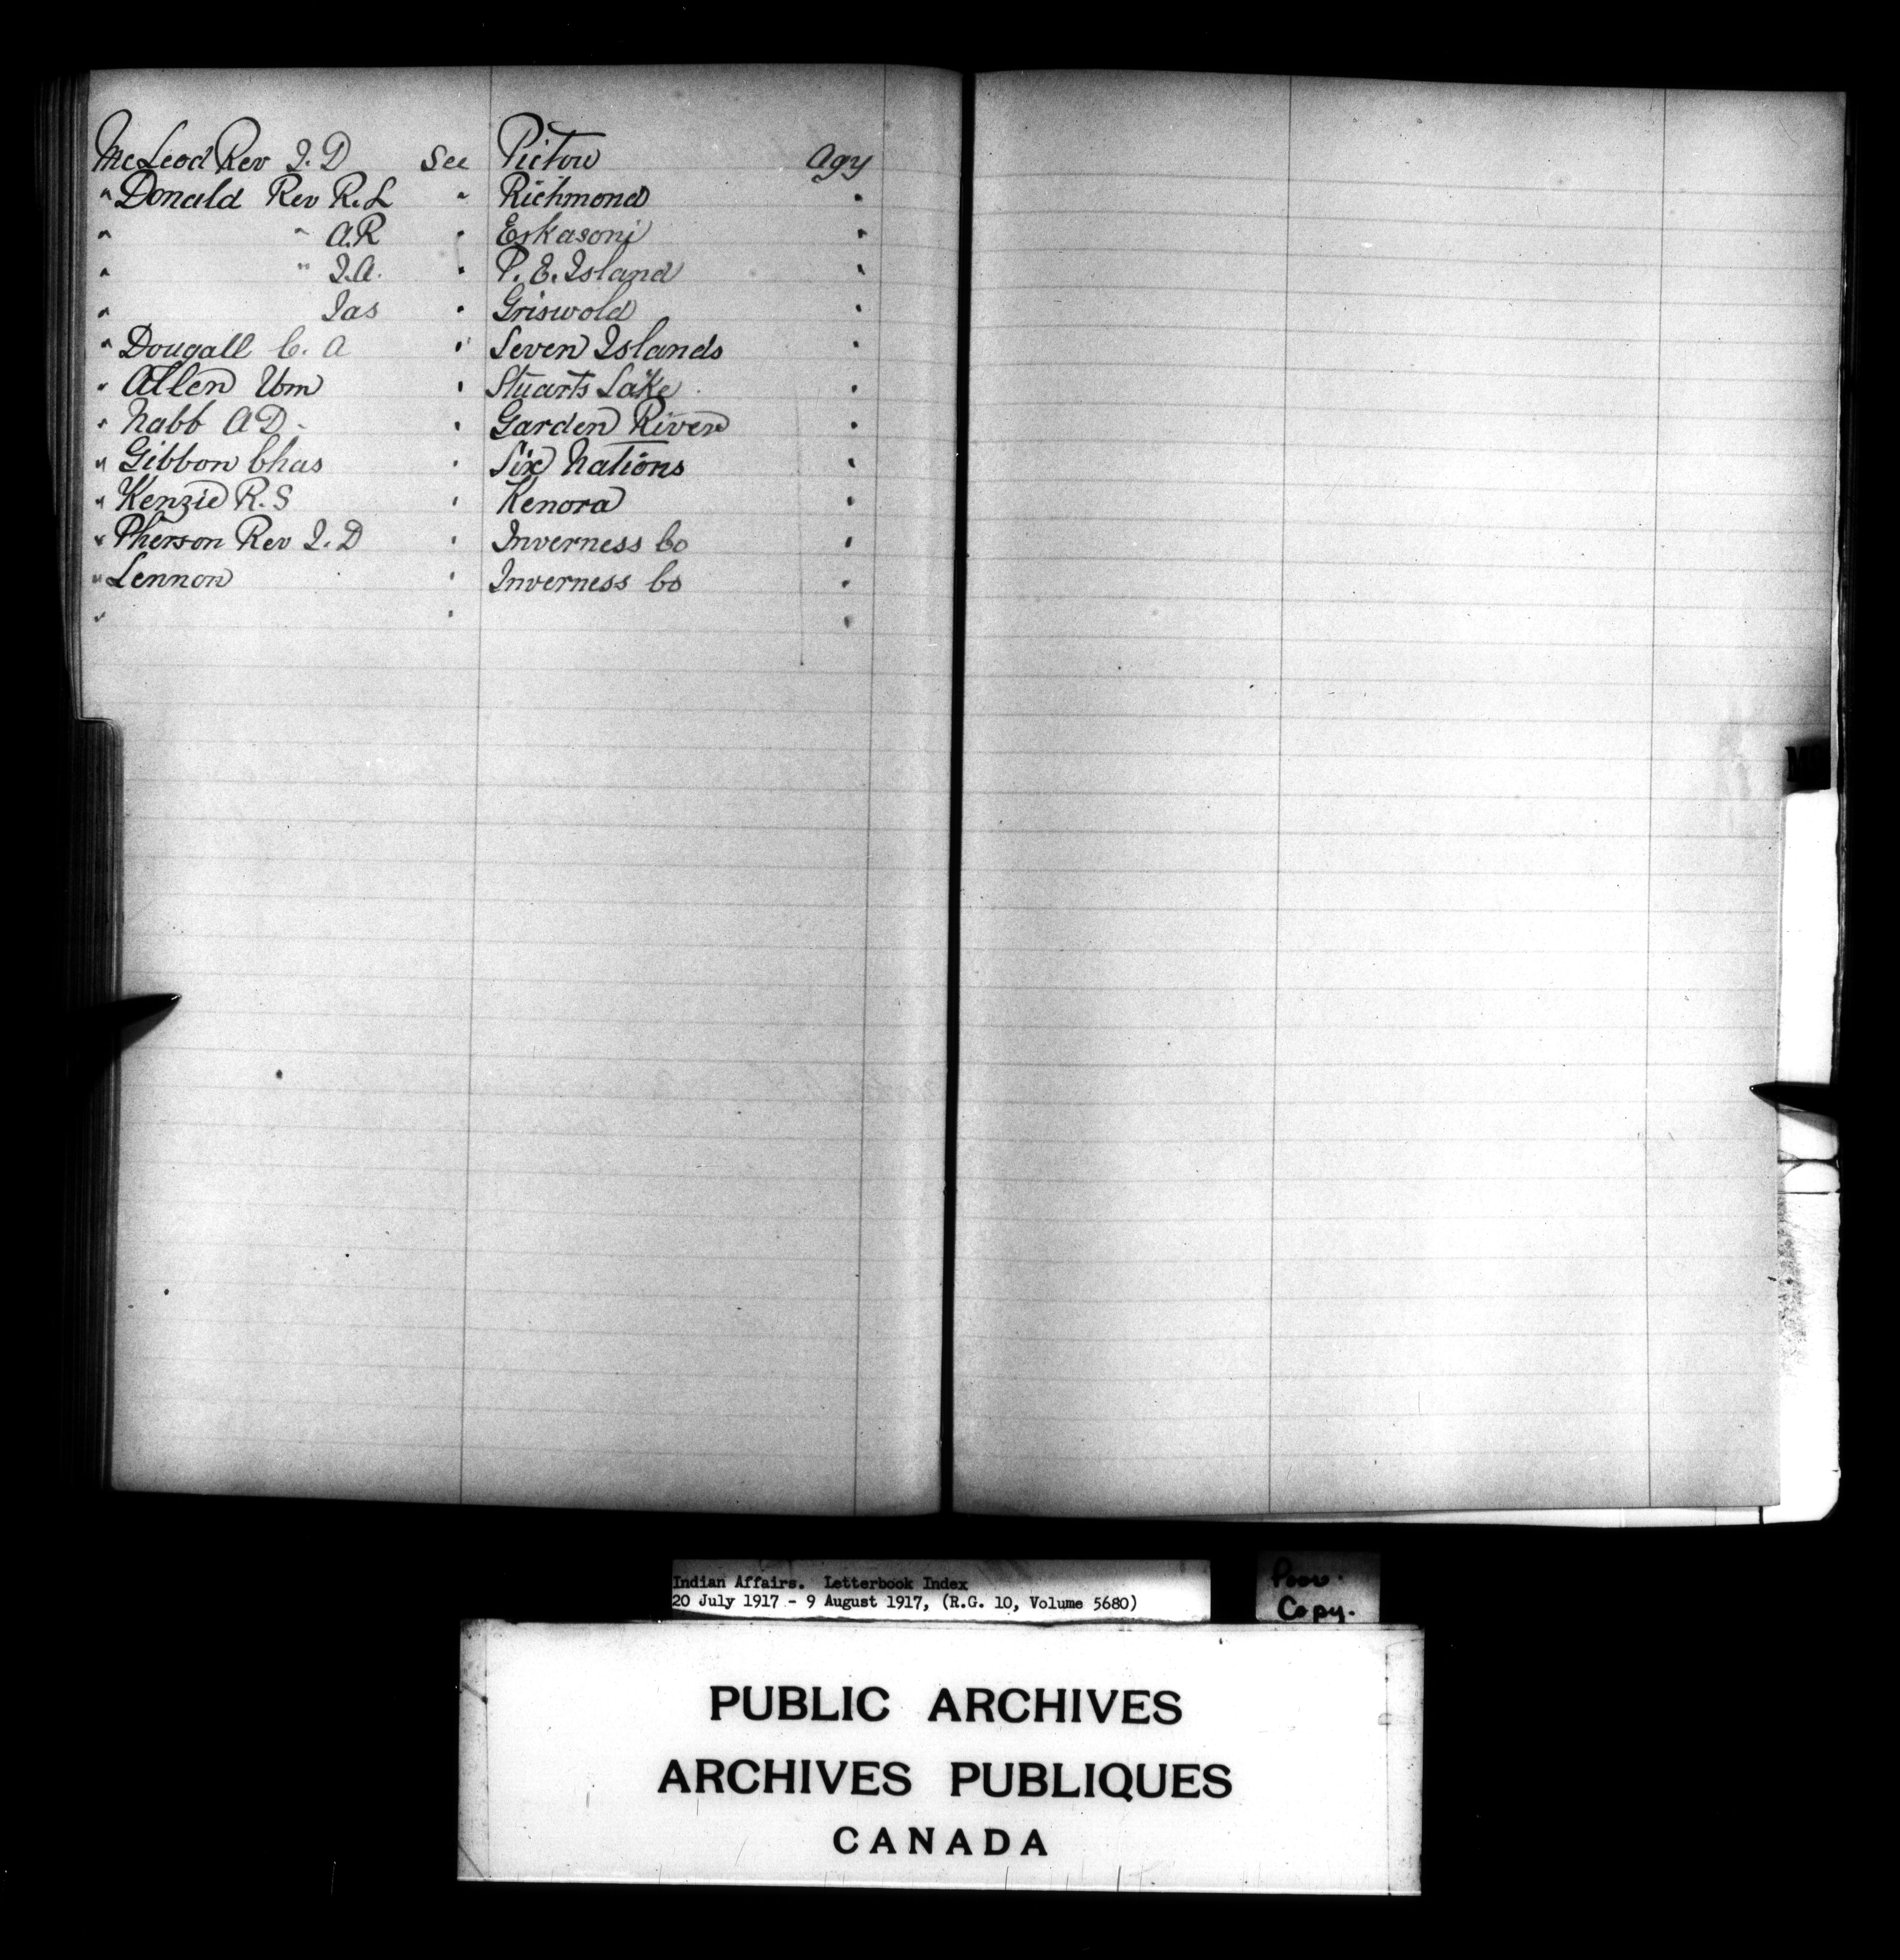 McLeod Rev J. D See Pictou Agy
" Donald Rev R. L " Richmond "
" " A. R " Eskasoni "
" " J. A. " P. E. Island "
" Jas " Griswold "
" Dougall C. A " Seven Islands "
" Allen Wm " Stuarts Lake "
" Nabb A D " Garden River "
" Gibbon Chas " Six Nations "
" Kenzie R. S " Kenora "
" Pherson Rev J. D " Inverness Co "
" Lennon " Inverness Co "
" " "
Indian Affairs. Letterbook Index
20 July 1917 - 9 August 1917, (R.G. 10, Volume 5680)
Poor
Copy.
PUBLIC ARCHIVES
ARCHIVES PUBLIQUES
CANADA